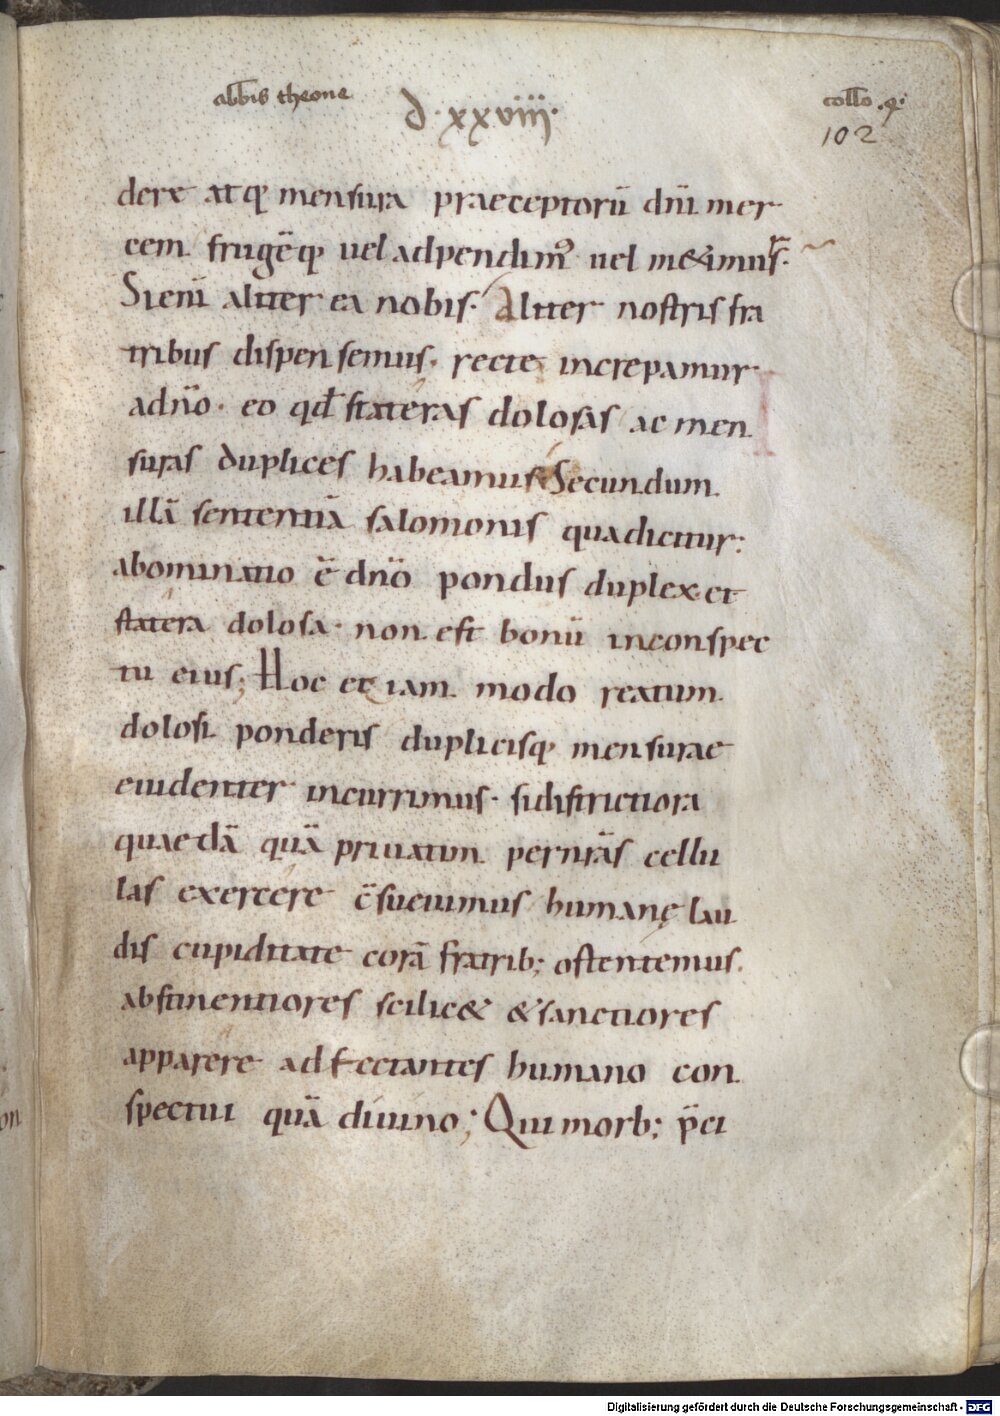 abb̅is theone
d · xxviiii ·
coll̅o .q.
102
dere atq; mensura praeceptorū dn̄i mer
cem frugēq; uel adpendimꝰ uel me&imur.
Sieni̅ aliter ea nobis. Aliter nostris fra
tribus dispensemus. recte increpamur
adn̄o. eo qd̄ statéras dolosas ac men
suras duplices habeamus. Secundum
illā sententiā salomonis quadicitur:
abominatio ē dn̄o pondus duplex. et
statéra dolosa. non est bonū inconspec
tu eius; Hoc et iam modo reatum
dolosi ponderis duplicisq; mensurae
euidenter incurrimus. sidistrictiora
quaedā quā priuatim pernr̄as cellu
las exercére c̄sueuimus humanę lau
dis cupiditate corā fratrib; ostentemus.
abstinentiores scilic& &sanctiores
apparére adfectantes humano con
spectui quā diuino; Quimorb; p̄ci
Digitalisierung gefördert durch die Deutsche Forschungsgemeinschaft - DFG